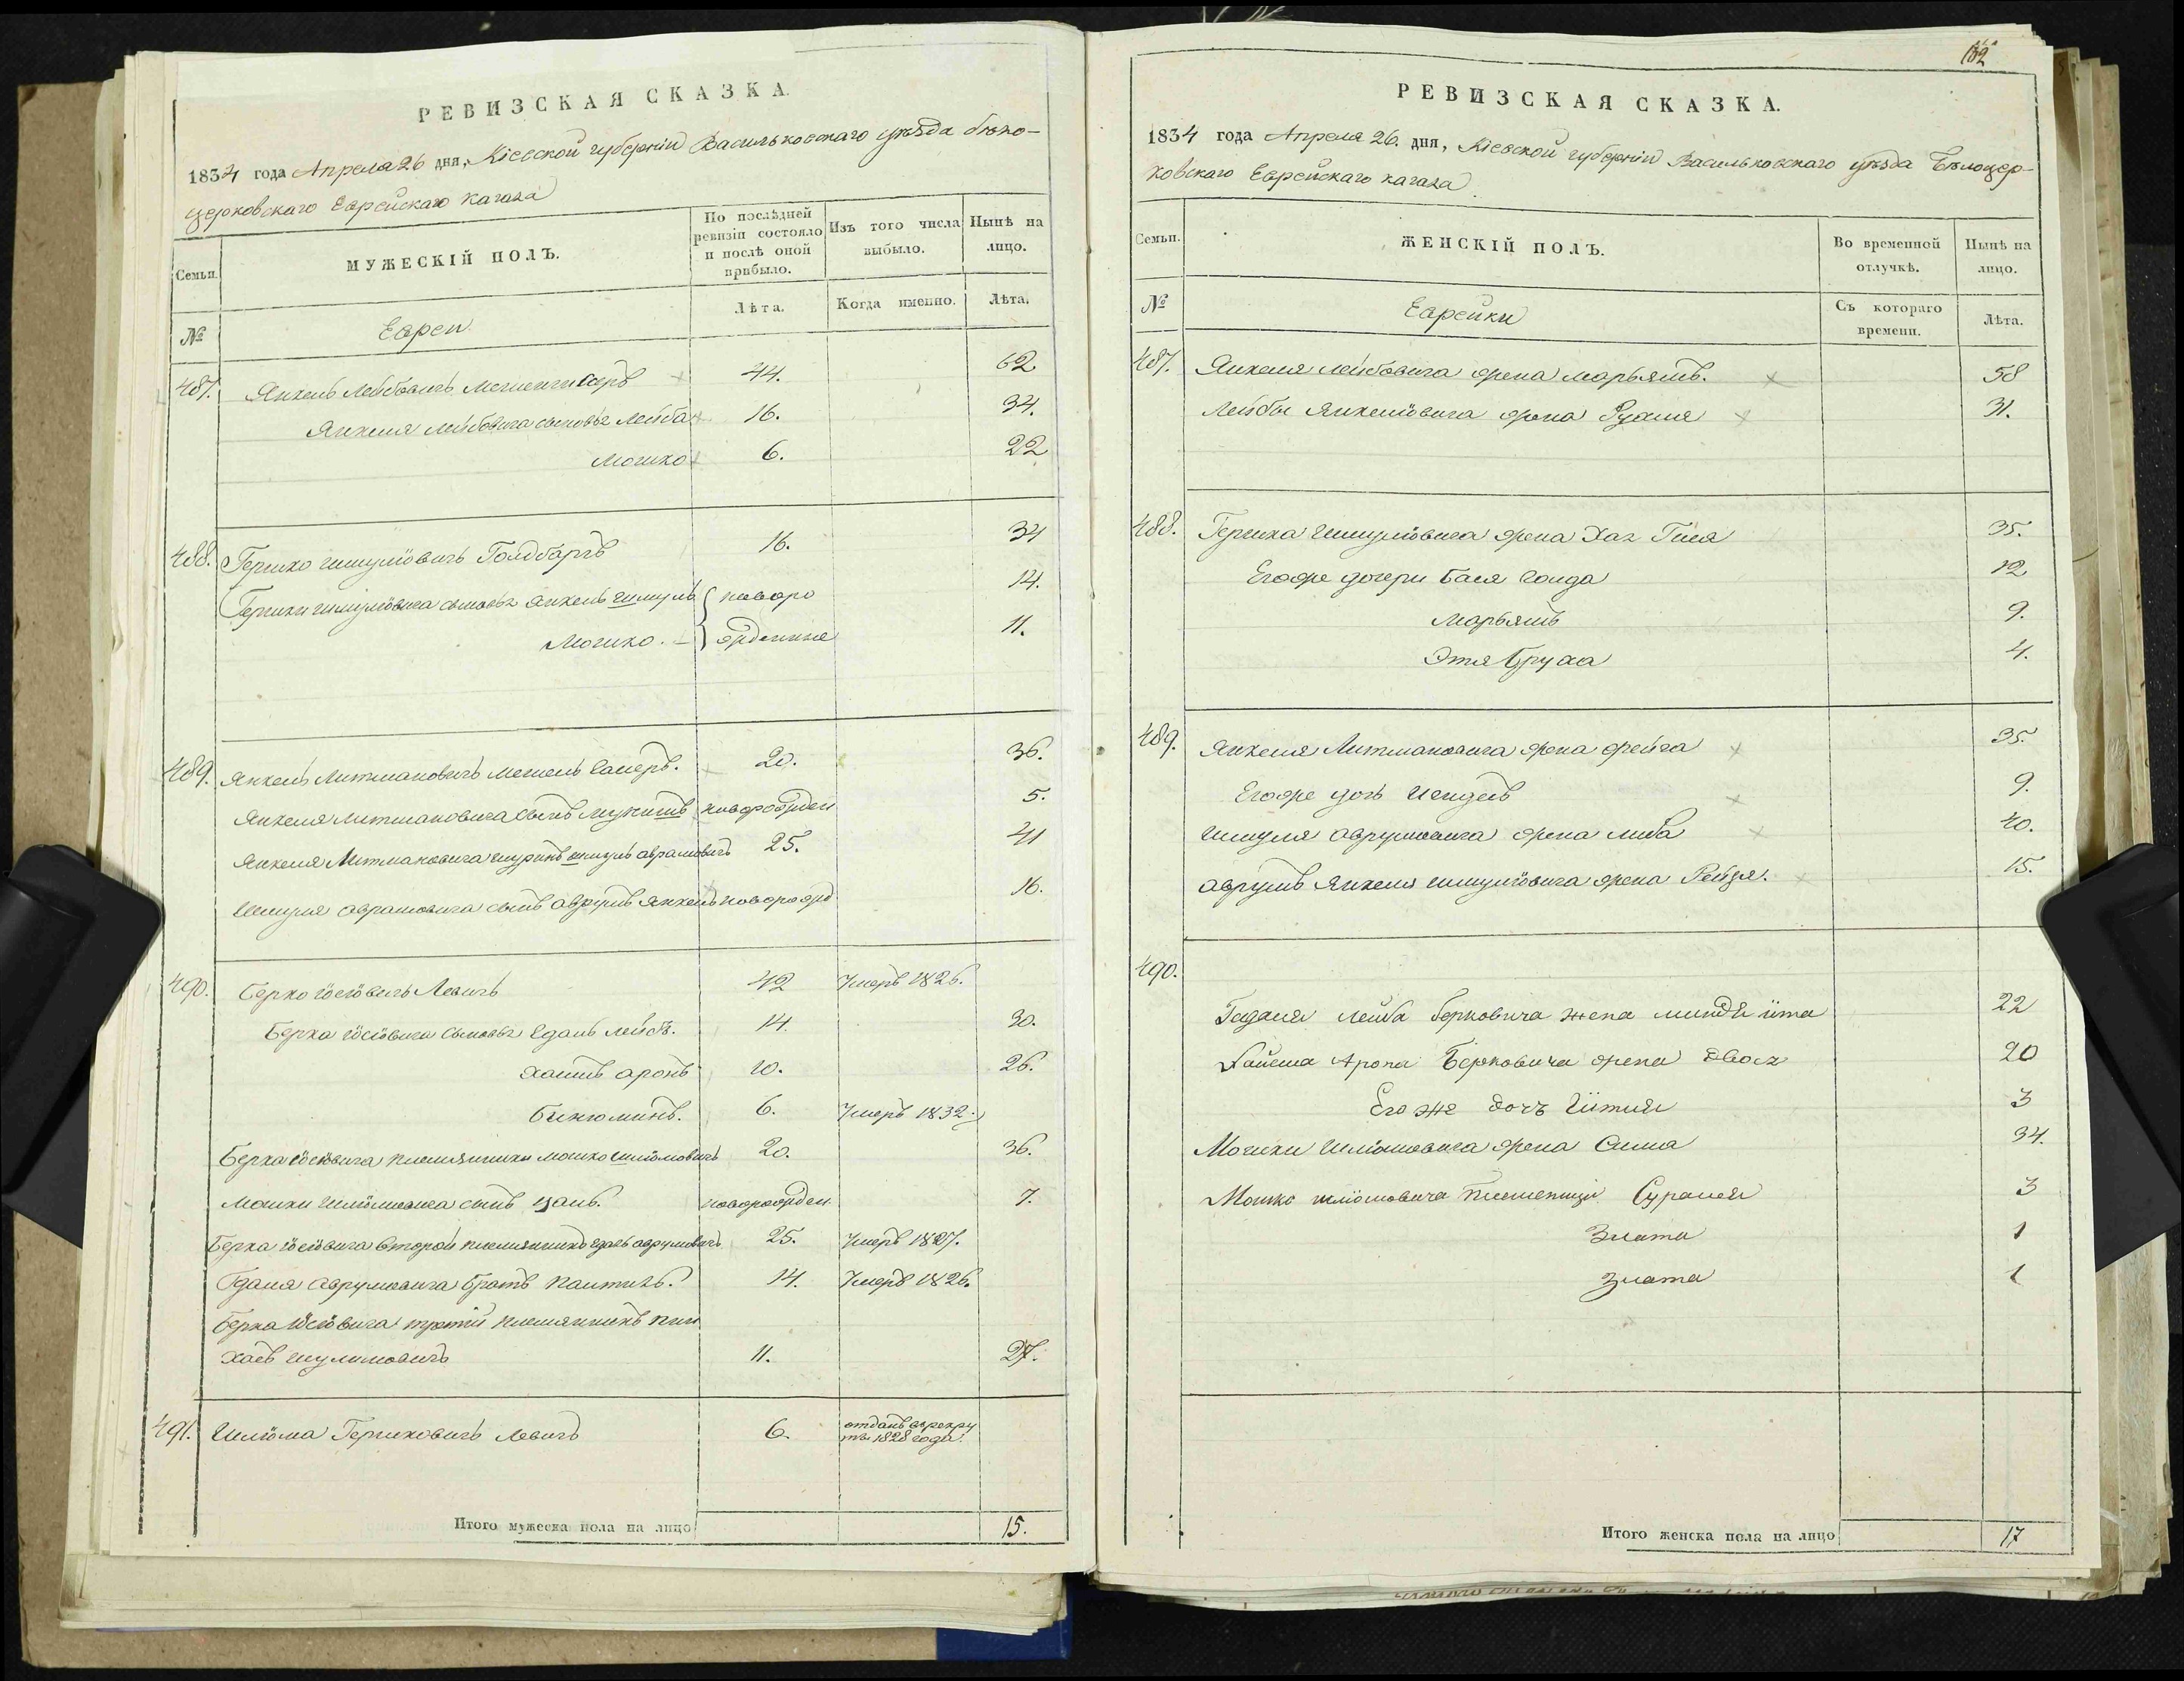 РЕВИЗСКАЯ СКАЗКА.
1834 года Апреля 26 дня, Кіевской губерніи Васильковскаго уѣзда бѣло-
церковскаго Еврейскаго кагала
Семьи.
МУЖЕСКІЙ ПОЛЪ.
По послѣдней ревизіи состояло и послѣ оной прибыло.
Изъ того числа выбыло.
Нынѣ на лицо.
№
Евреи
Лѣта.
Когда именно.
Лѣта.
487. Янкель Лейбовичъ 44. 62
Янкеля Лейбовича сыновья Лейба 16. 34.
Мошко 6. 22
488. Гершко Шмулiовичъ Голдбаргъ 16. 34
Гершки Шмулiовича сыновья Янкель Шмуль новоро 14.
Мошко. жденные 11.
489. Янкель Литмановичъ 20. 36.
Янкеля Литмановича сынъ новорожден 5.
Янкеля Литмановича шуринъ Шмуль Аврамовичъ 25. 41
Шмуля Аврамовича сынъ Аврумъ Янкель новорожд 16.
490. Берко Іосіовичъ Левитъ 42 Умеръ 1826.
Берка Іосіовича сыновья Гдаль Лейбъ. 14. 30.
Хаимъ Аронъ 10. 26.
Бинюминъ. 6. Умеръ 1832.
Берка Іосіовича племянникъ Мошко Шліомовичъ 20. 36.
Мошки Шліомовича сынъ новорожден 7.
Берка Іосіовича второй племянникъ Гдаль Аврумовичъ 25. Умеръ 1827.
Гдаля Аврумовича братъ 14. Умеръ 1826.
Берка Іосіовича третій племянникъ Пин
хасъ Шулимовичъ 11. 27.
491. Шліома Гершковичъ Левитъ 6. отданъ въ рекру
ты 1828 года.
Итого мужеска пола на лицо 15.
182
РЕВИЗСКАЯ СКАЗКА.
1834 года Апреля 26. дня, Кіевской губерніи Васильковскаго уѣзда Бѣлоцер-
ковскаго Еврейскаго кагала
Семьи.
ЖЕНСКІЙ ПОЛЪ.
Во временной отлучкѣ.
Нынѣ на лицо.
№
Еврейки
Съ котораго времени.
Лѣта.
487. Янкеля Лейбовича жена Марьямъ. 58
Лейбы Янкеліовича жена Рухля 31.
488. Гершка Шмуліовича жена Хая 35.
Егоже дочери Бася 12
Марьямъ 9.
Этя Бруха 4.
489. Янкеля Литмановича жена Фрейга 35.
Егоже дочь 9.
Шмуля Аврумовича жена Либа 40.
Аврумъ Янкеля Шмуліовича жена Рейзя. 15.
490.
Гадаля Лейба Берковича жена Миндя Ита 22
Хаима Арона Берковича жена Двося 20
Его же дочъ 3
Мошки Шліомовича жена Сима 34.
Мошко Шліомовича племеници Сураля 3
Злата 1
Злата 1
Итого женска пола на лицо 17